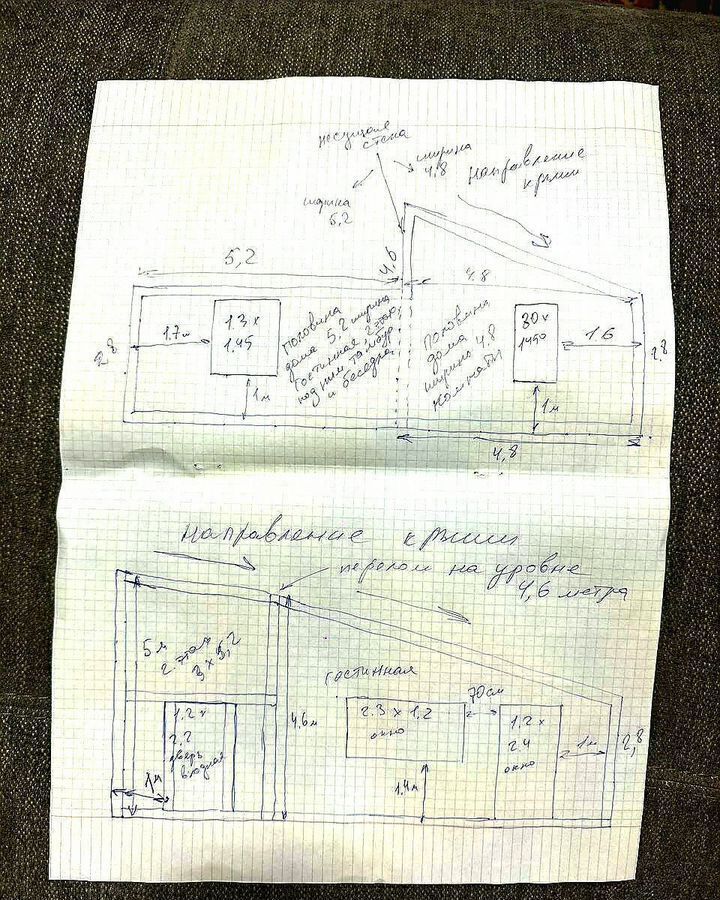 несущая
стена
ширина
4,8
ширина
5,2
Направление
крыши
5,2
4,6
4.8
2.8
1.7м
1.3 х
1.45
1м
Половина
дома 5,2 ширина
Гостинная 2 этаж,
под ним
и беседка
Половина
дома
ширина 4.8
комнаты
80х
1450
1.6
2.8
1м
4,8
Направление крыши
перелом на уровне
4,6 метра
5м
2. этаж
3 х 5,2
Гостинная
70см
1,2 х
2,2
дверь
входная
4.6м
2.3 х 1,2
окно
1,2х
2.4
окно
1м
2,8
1м
1.4м